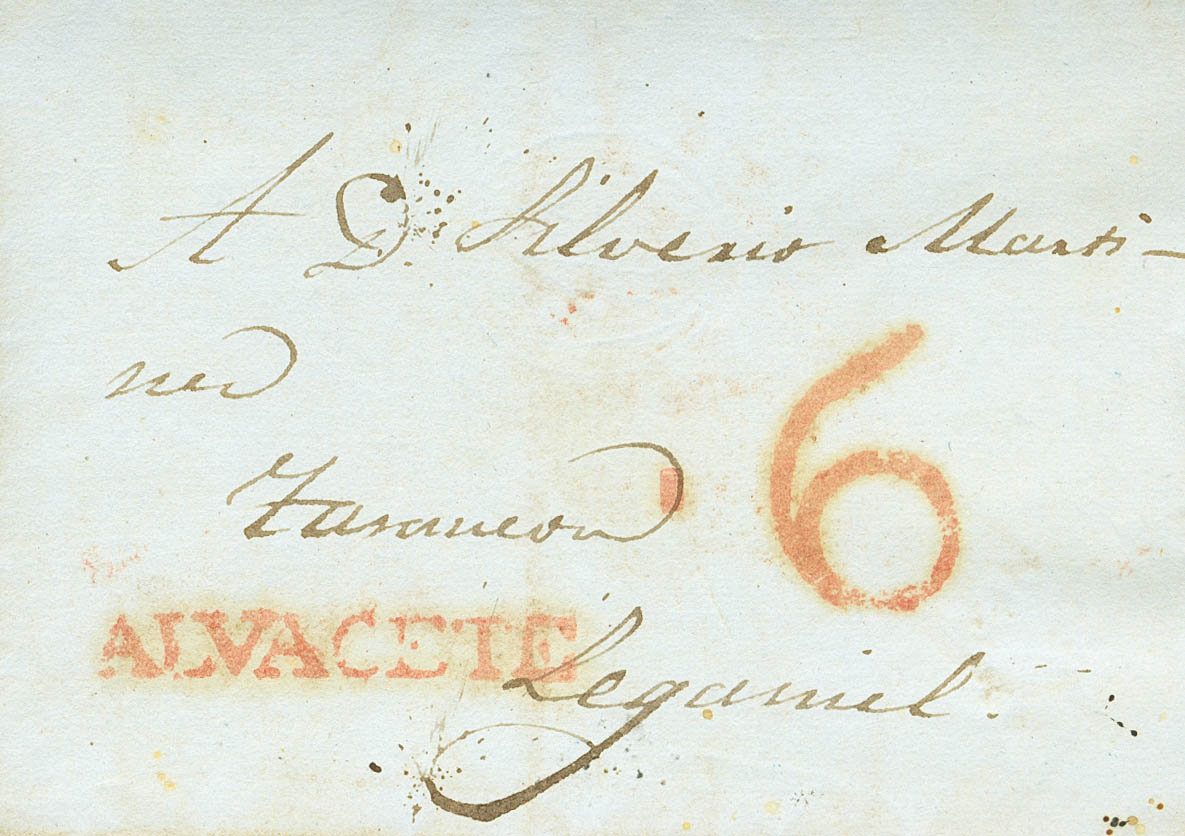 A D.n Silverio Marti-
nez
Tarancon
6
ALVACETE
Leganiel.